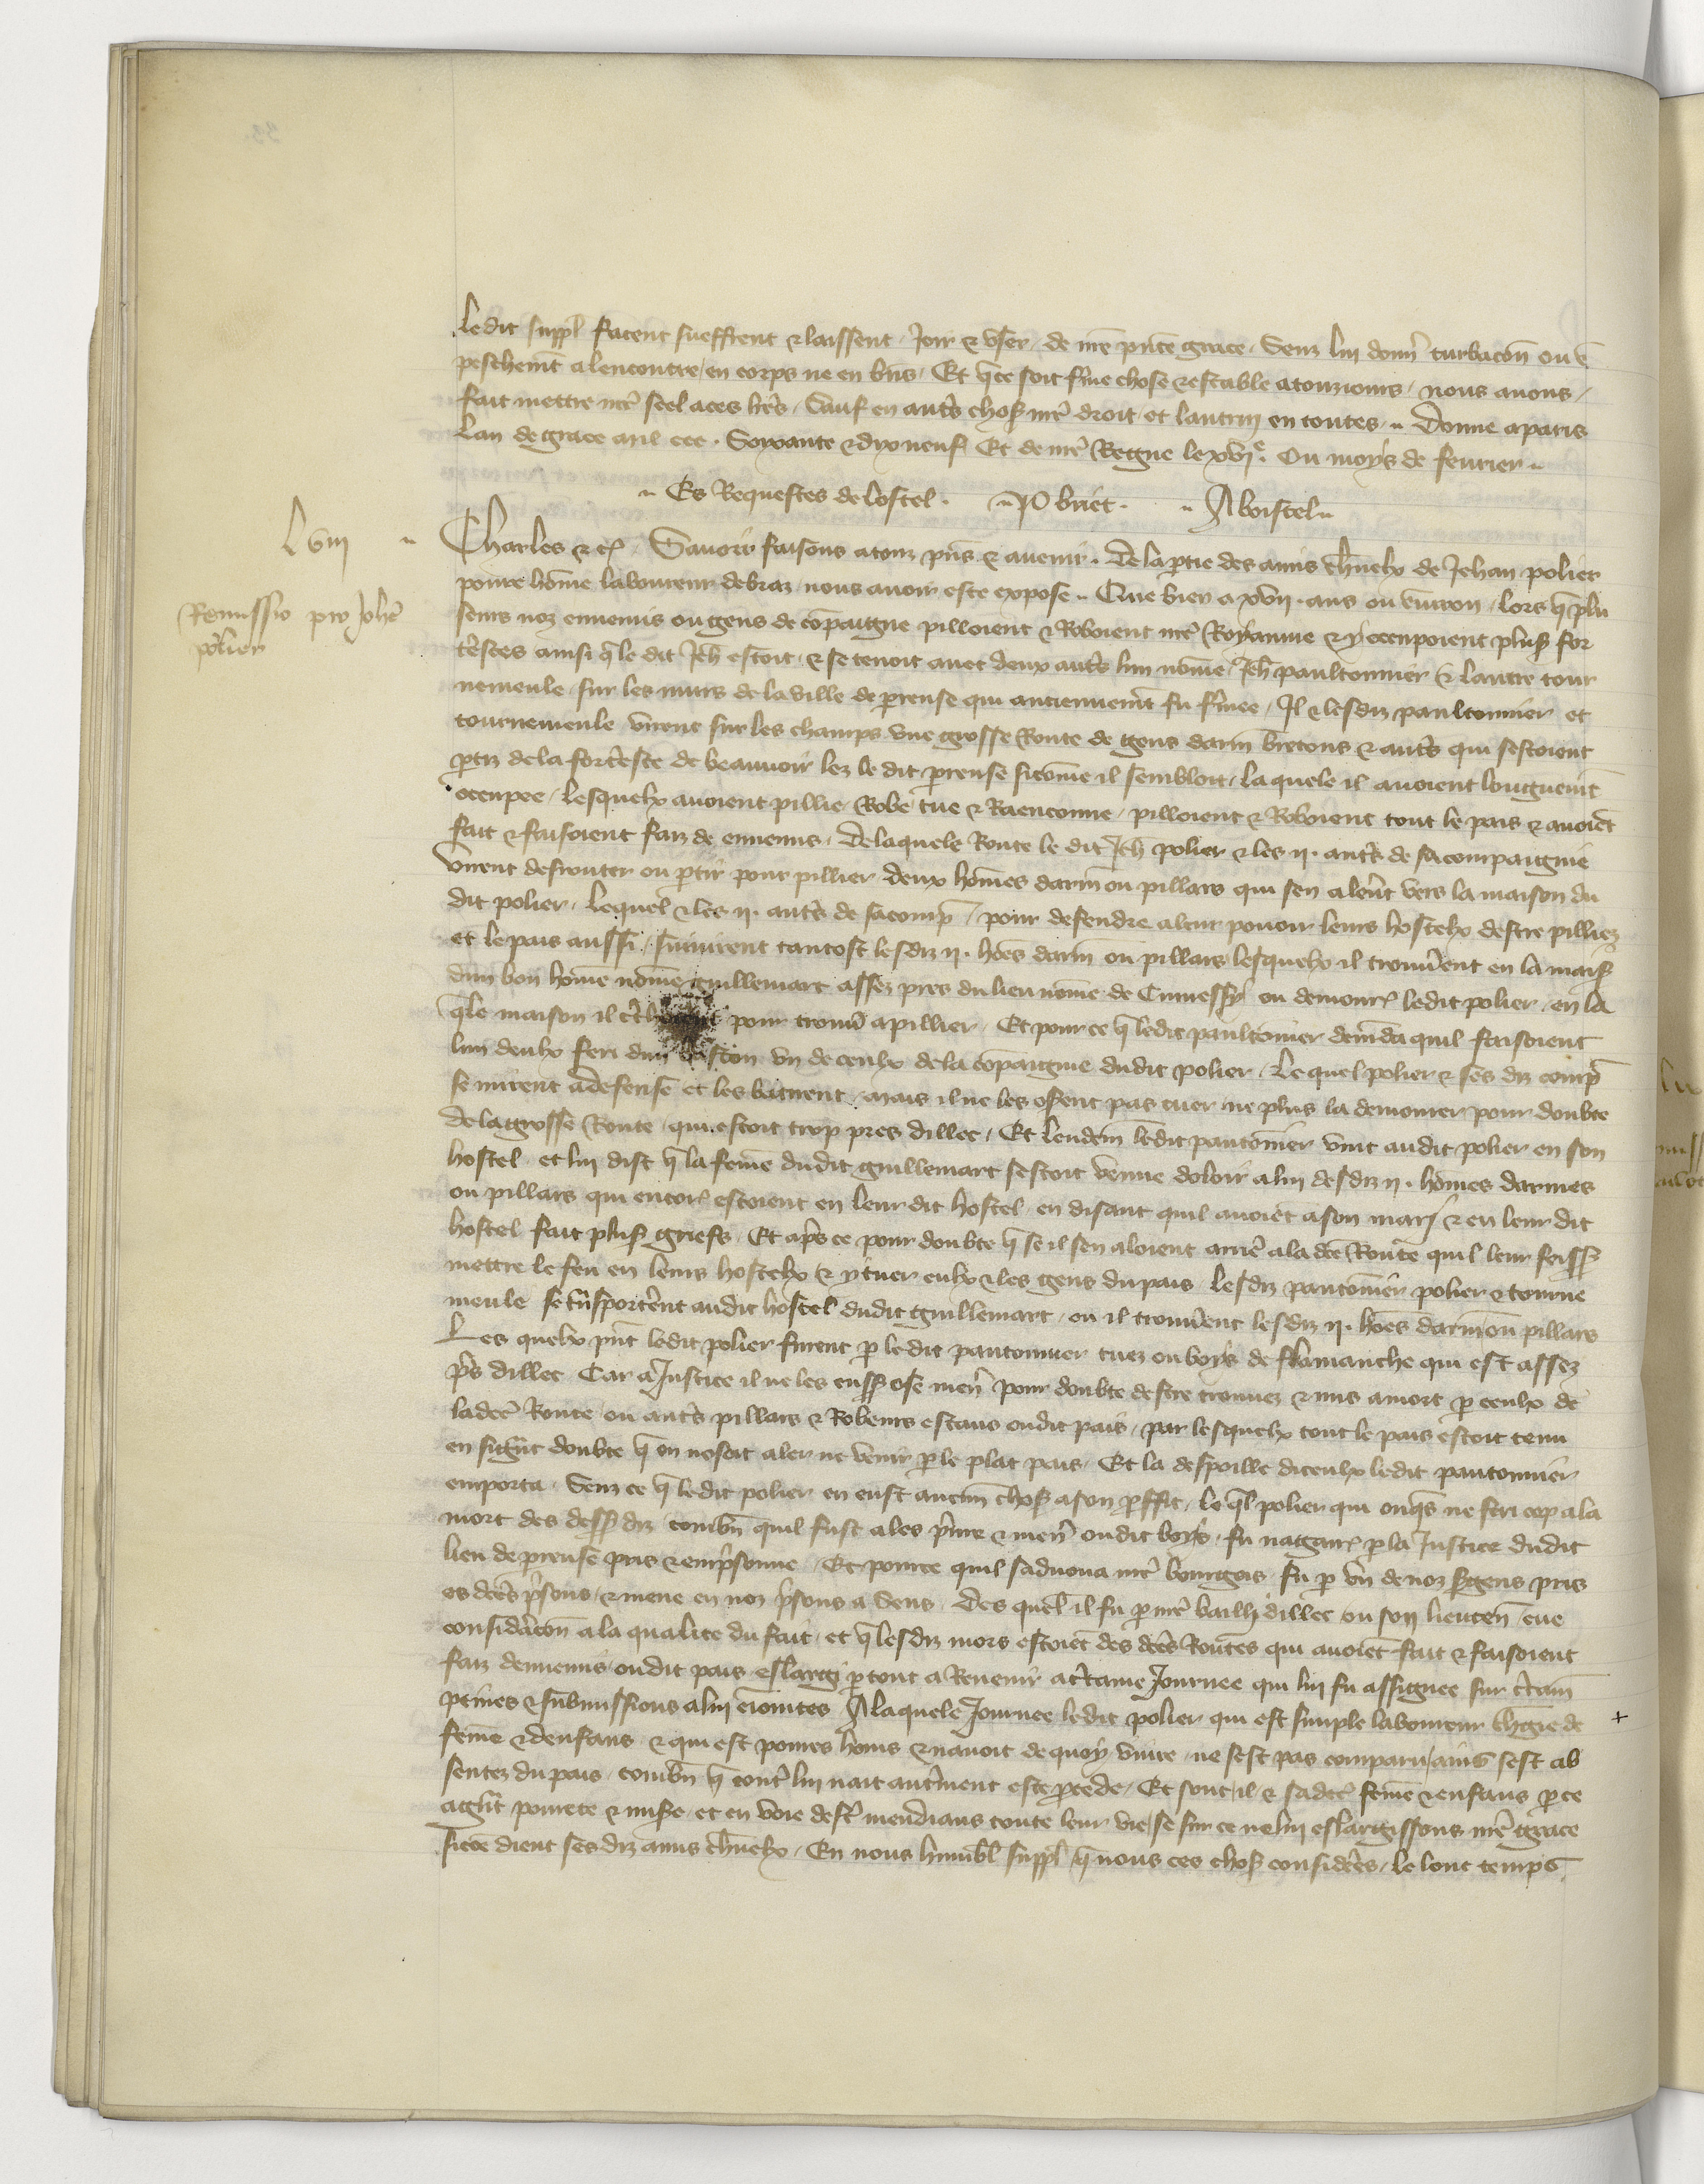 ledit suppl facent sueffrent & laissent Joir & user de nre pnte grace Senz lui donn turbacon ou e
peschemt alencontre en corps ne en bns Et q ce soit ferme chose & estable atouzjours nous avons
fait mettre nre seel a ces lres Sauf en autres choses nre droit et lautrui en toutes Donne a paris
Lan de grace mil ccc Soixante & dix neuf Et de nre Regne le xvi e Ou moys de fevrier
Es Requestes de lostel P briet A boistel
Lviii
Charles &c Savoir faisons a touz pns & avenir De la ptie des amis charnelx de Jehan polier
Remissio pro Johe
polier
povre home laboureur de braz nous avoir este expose Que bien a xvii ans ou environ lors q plu
seurs noz ennemis ou gens de compaigne pilloient & Roboient nre Royaume & y occupoient plus for
teresces ainsi q le dit Jeh estoit & se tenoit avec deux autres lun nome Jeh paultonnier & lautre tour
nemeule sur les murs de la ville de preuse qui anciennemt fu fermee Il & lesdiz paultonnier et
tournemeule virent sur les champs une grosse Route de gens darm bretons & autres qui sestoient
ptiz de la forteresce de beauvoir lez le dit preuse sicome il sembloit laquele il avoient longuemt
occupee lesquelx avoient pillie Robe tue & Raenconne pilloient & Roboient tout le pais & avoiet
fait & faisoient faiz de ennemis De laquele Route le dit Jeh polier & les ii autres de sa compaignie
virent desrouter ou ptir pour pillier deux homes darm ou pillars qui sen alerent vers la maison du
dit polier Lequel & les ii autres de sa comp pour defendre a leur povoir leurs hostelx destre pilliez
et le pais aussi suivirent tantost lesdiz ii homes darm ou pillars lesquelx il trouverent en la mais
dun bon home nome guillemart assez pres du lieu nome de Cunessy ou demour ledit polier en la
qle maison il pour trouv a pillier Et pour ce q ledit paultonier demanda quil faisoient
lun deulx feri dun baston un de ceulx de la copaignie dudit polier Lequel polier & ses diz comp
se mirent a defense et les batirent mais il ne les oserent pas tuer ne plus la demourer pour doubte
de la grosse Route qui estoit trop pres dillec Et lendem ledit pautonier vint audit polier en son
hostel et lui dist q la feme dudit guillemart sestoit venue doloir a lui desdiz ii homes darmes
ou pillars qui encor estoient en leur dit hostel en disant quil avoiet a son mary & en leur dit
hostel fait plus griefs Et apres ce pour doubte q se il sen aloient arriere a la dce Route quil leur feiss
mettre le feu en leurs hostelx & y tuer eulx & les gens du pais lesdiz pautonier polier & tourne
meule se transporterent audit hostel dudit guillemart ou il trouverent lesdiz ii homes darm ou pillars
Les quelx pnt ledit polier furent p ledit pautonnier tuez ou boys de flamanche qui est assez
pres dillec Car a Justice il ne les euss ose men pour doubte destre trouvez & mis a mort p ceulx de
la dce Route ou autres pillars & Robeurs estans oudit pais par lesquelx tout le pais estoit tenu
en si grant doubte q on nosoit aler ne venir p le plat pais Et la despoille diceulx ledit pautonnier
emporta Senz ce q ledit polier en eust aucune chose a son proffit le ql polier qui onques ne feri cop a la
mort des dess diz combn quil fust a les prenre & men oudit boys fu nagair p la Justice dudit
lieu de preuse pris & emprisonne Et pource quil sadvoua nre bourgois fu p un de noz sergens pris
es dces prisons & mene en noz prisons a Sens Des quel il fu p nre bailli dillec ou son lieuten eue
consideracon a la qualite du fait et q lesdiz mors estoiet des dces Routes qui avoiet fait & faisoient
faiz dennemis oudit pais eslargi p tout a Revenir a certaine Journee qui lui fu assignee sur certain
peines & submissions a lui enjointes A laquele Journee ledit polier qui est simple laboureur chgie de
feme & denfans & qui est povres homs & navoit de quoy vivre ne sest pas comparu ains sest ab
sentez du pais combn q contre lui nait autrement este pcede Et sont il & sadce feme & enfans p ce
a grant povrete & misere et en voie destre mendians toute leur vie se sur ce ne lui eslargissons nre grace
sicoe dient ses diz amis charnelx En nous humbl suppl q nous ces choses considerees le lonc temps